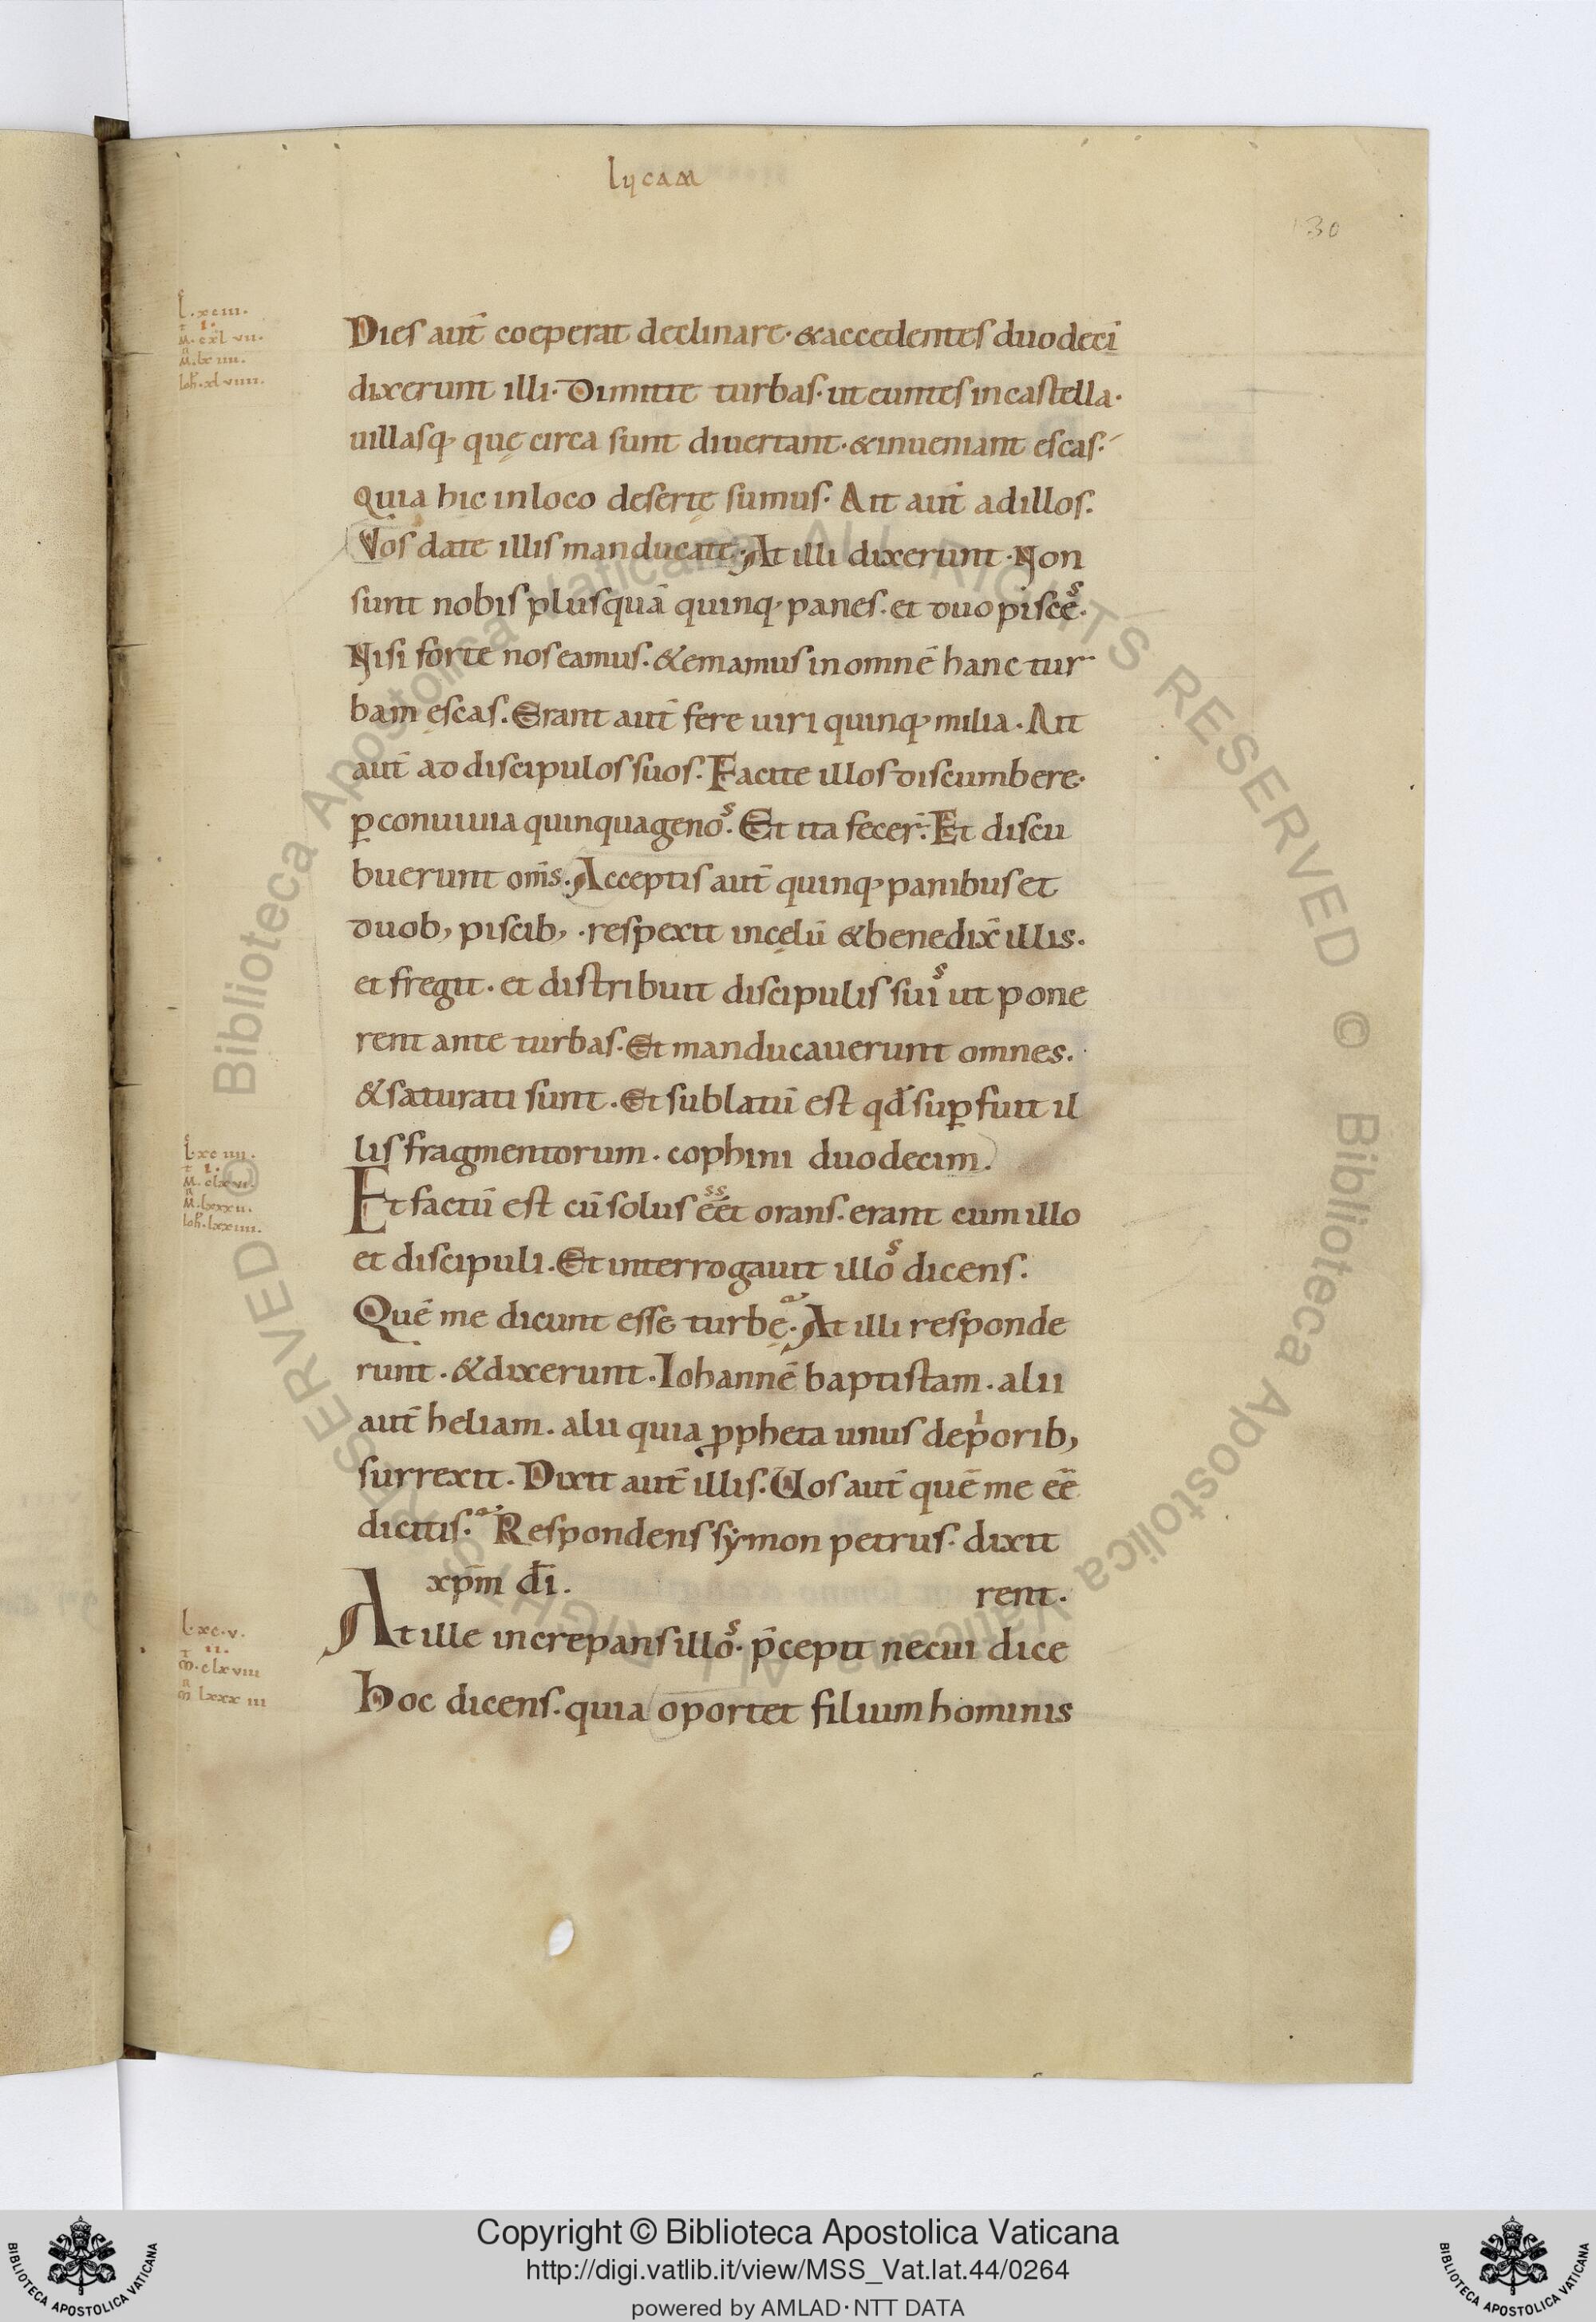 lycam
130
L.xciii.
t i.
M.cxlvii.
M.lxiiii.
Ioh.xlviiii.
Dies aut̄ coeperat declinare·&accedentes duodecī
dixerunt illi·Dimitte turbas·ut euntes in castella·
uillasq; quę circa sunt diuertant·&inueniant escas·
quia hic in loco desertę sumus· Ait aut̄ ad illos.
Vos date illis manducate·At illi dixerunt·Non
sunt nobis plus quā quinq; panes·et duo pisces·
Nisi forte nos eamus·&emamus in omnē hanc tur
bam escas·Erant aut̄ fere uiri quinq; milia·Ait
aut̄ ad discipulos suos·Facite illos discumbere·
ꝑ conuiuia quinquagenos·Et ita fecer̄·Et discu
buerunt om̄s·Acceptis aut̄ quinq; panibus et
duob; piscib;·respexit in cęlū &benedix̄ illis·
et fregit·et distribuit discipulis suis ut pone
rent ante turbas·Et manducauerunt omnes.
&saturati sunt·Et sublatū est qđ suꝑfuit il
lis fragmentorum·cophini duodecim.
L.xciiii.
t i.
M.clxvi.
M.lxxxii.
Ioh.lxxiiii.
Et factū est cū solus eēt orans·erant cum illo
et discipuli·Et interrogauit illos dicens·
Quē me dicunt esse turbę·At illi responde
runt·&dixerunt·Iohannē baptistam·alii
aut̄ heliam·alii quia ꝓpheta unus de pͥorib;
surrexit·Dixit aut̄ illis·Uos aut̄ quē me eē
dicitis· Respondens symon petrus·dixit
xp̄m dī.
rent·
L.xc.v.
t ii.
M.clxviii
M lxxxiii
At ille increpans illos·p̄cepit ne cui dice
Hoc dicens·quia oportet filium hominis
Copyright © Biblioteca Apostolica Vaticana
http://digi.vatlib.it/view/MSS_Vat.lat.44/0264
powered by AMLAD·NTT DATA